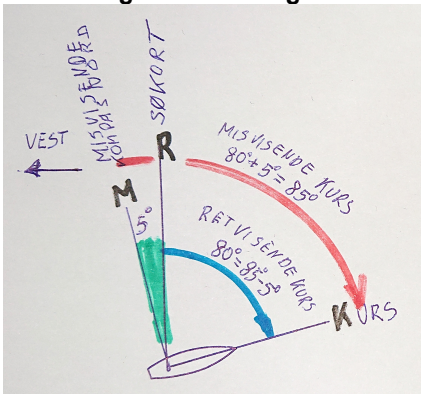 MISVISENDE
KOMPAS NORD
SØKORT
VEST
R
M
5°
MISVISENDE KURS
80°+5°=85°
RETVISENDE KURS
80°=85°-5°
KURS